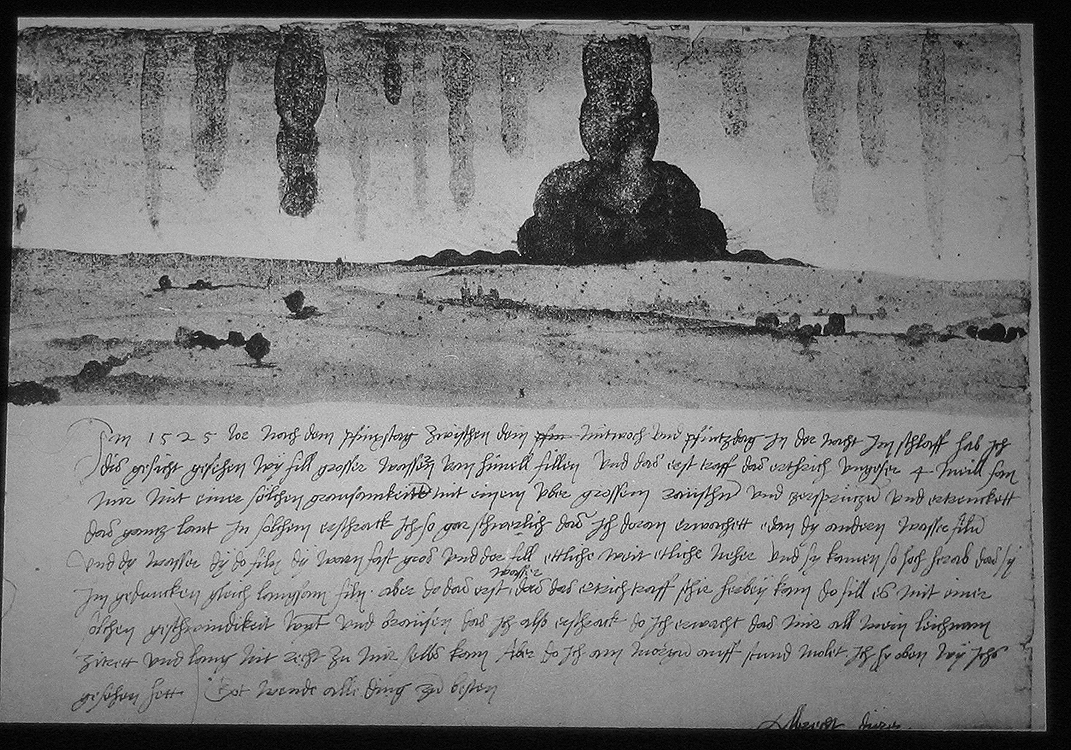 Im 1525 Jor nach dem pfinxstag zwischen dem Mitwoch und pfintzdag in der nacht im schlaff hab ich
dis gesicht gesehen wy fill grosser wassern vom himell fillen Und das erst traff das erthrich ungefer 4 meill fan
mir mit einer solchen grausamkeitt mit einem uber grossem raüschn und zersprützn und ertrenckett
das gantz lant In solchem erschrack ich so gar schwerlich das ich doran erwachett edan dy andern wasser filn
Und dy wasser dy do filn dy warn fast gros und der fill ettliche weit etliche neher und sy kamen so hoch herab das sy
wasser
im gedancken gleich langsam filn. aber do das erst das das ertrich traff schir herbey kam do fill es mit einer
solchen geschwindikeit wynt und braüsen das ich also erschrack do ich erwacht das mir all mein leichnam
zitrett und lang nit recht zu mir selbs kam Aber do ich am morgn auff stund molet ich hy oben wy ichs
gesehen hett. Got wende alle ding zw besten
Albrecht dürer